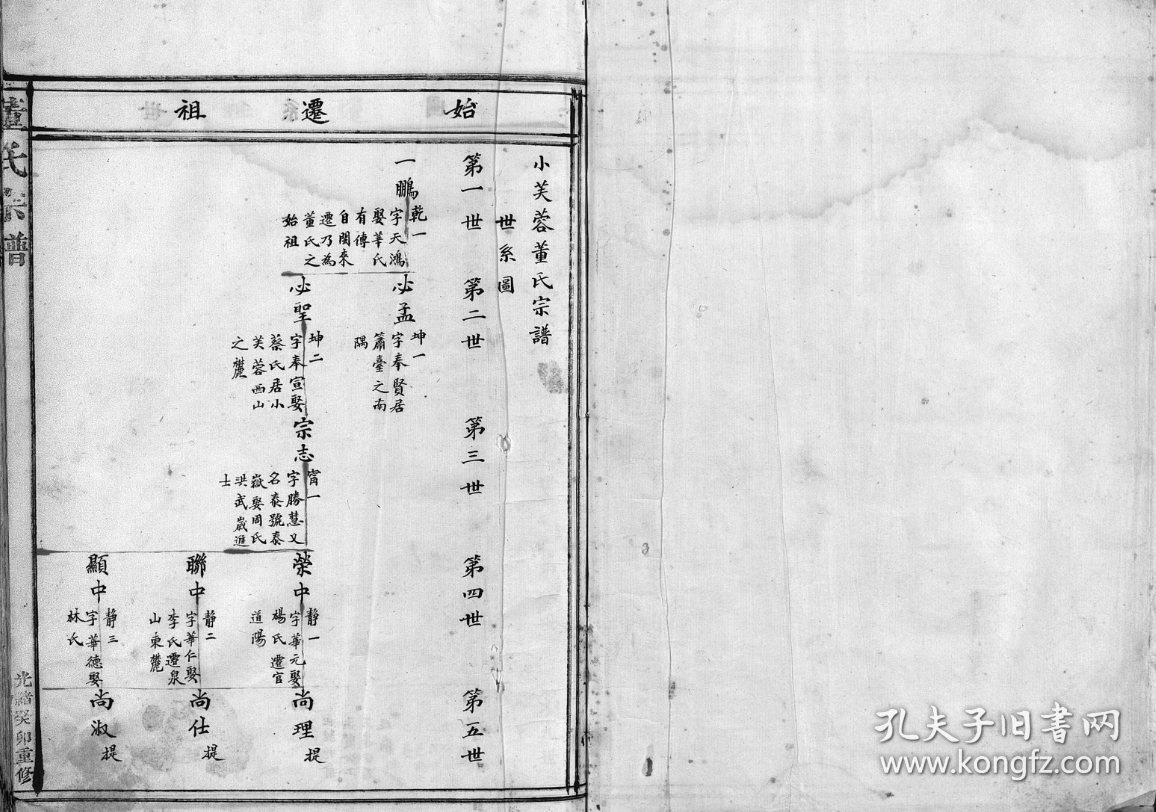 始遷祖
小芙蓉董氏宗譜
世系圖
第一世
第二世
第三世
第四世
第五世
一鵬
乾一
字天鴻
娶華氏
有傳
自閩來
遷乃為
董氏之
始祖
必孟
坤一
字奉賢居
簫臺之南
隅
必聖
坤二
字奉宣娶
蔡氏居小
芙蓉西山
之麓
宗志
甯一
字勝慧又
名泰號泰
嶽娶周氏
洪武歲進
士
榮中
靜一
字華元娶
楊氏遷官
道陽
聯中
靜二
字華仁娶
李氏遷泉
山東麓
顯中
靜三
字華德娶
林氏
尚理
提
尚仕
提
尚淑
提
董氏宗譜
光緒癸卯重修
孔夫子旧书网
www.kongfz.com